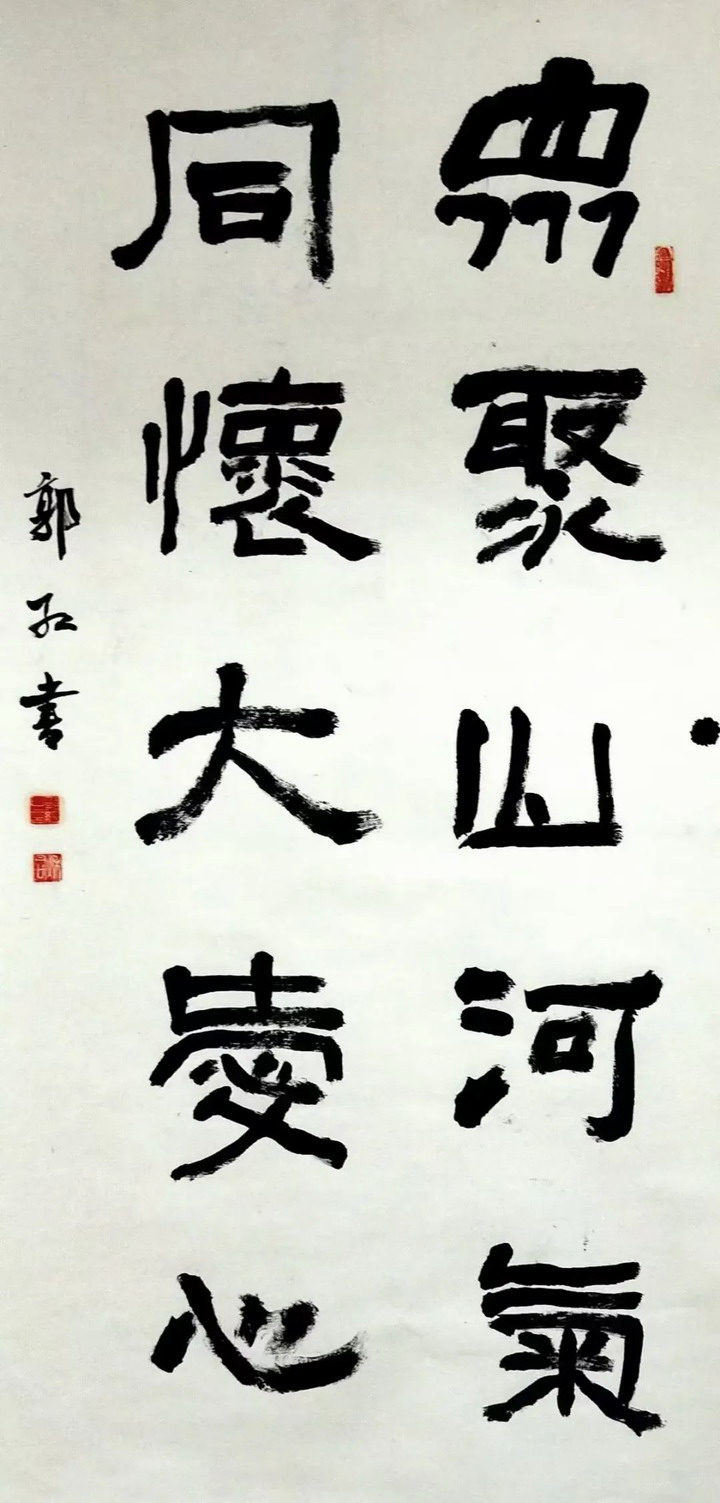 衆聚山河氣
同懷大愛心
郭書